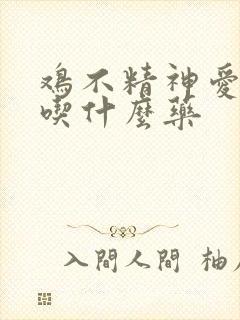 鸡不精神爱
喫什麼藥
入間人間 柚